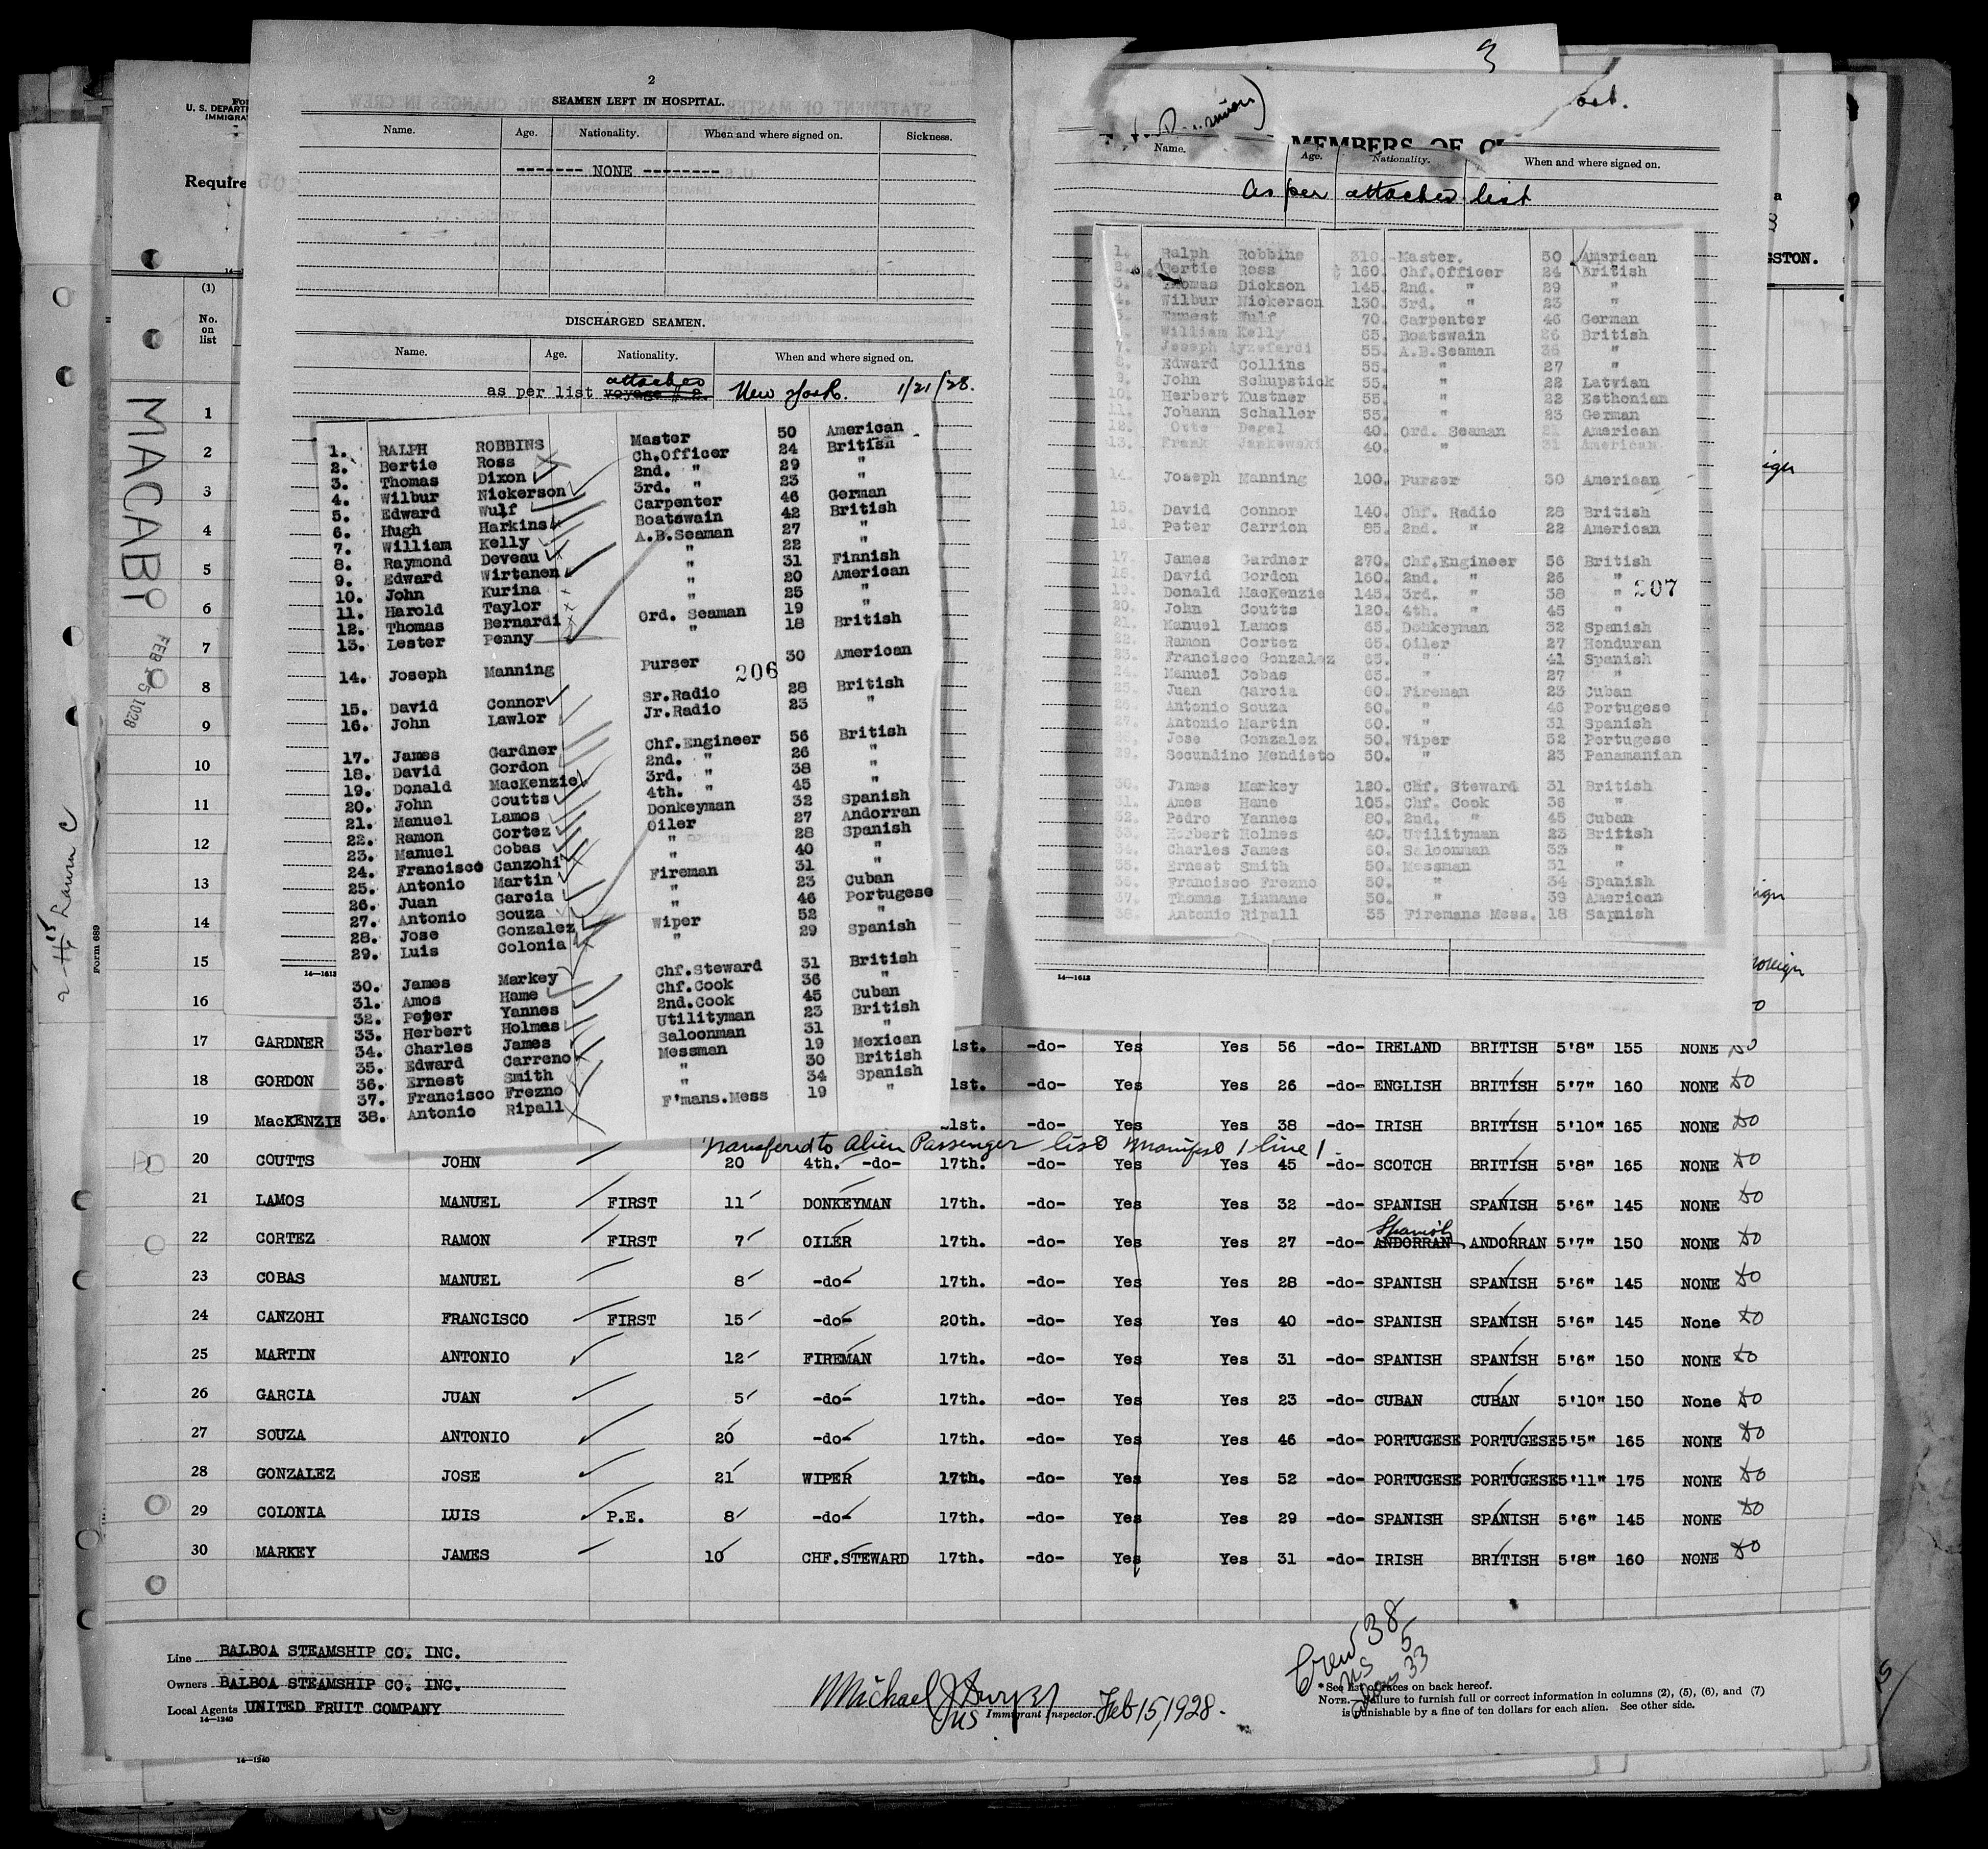 2
SEAMEN LEFT IN HOSPITAL.
Name. Age. Nationality. When and where signed on. Sickness.
------- NONE ---------
DISCHARGED SEAMEN.
Name. Age. Nationality. When and where signed on.
attached
as per list voyage # 2. New York. 1/21/28.
1. RALPH ROBBINS Master 50 American
2. Bertie Ross Ch.Officer 24 British
3. Thomas Dixon 2nd. " 29 "
4. Wilbur Nickerson 3rd. " 23 "
5. Edward Wulf Carpenter 46 German
6. Hugh Harkins Boatswain 42 British
7. William Kelly A.B.Seaman 27 "
8. Raymond Deveau " 22 "
9. Edward Wirtanen " 31 Finnish
10. John Kurina " 20 American
11. Harold Taylor " 25 "
12. Thomas Bernardi Ord. Seaman 19 "
13. Lester Penny " 18 British
14. Joseph Manning Purser 30 American
206
15. David Connor Sr.Radio 28 British
16. John Lawlor Jr.Radio 23 "
17. James Gardner Chf.Engineer 56 British
18. David Gordon 2nd. " 26 "
19. Donald MacKenzie 3rd. " 38 "
20. John Coutts 4th. " 45 "
21. Manuel Lamos Donkeyman 32 Spanish
22. Ramon Cortez Oiler 27 Andorran
23. Manuel Cobas " 28 Spanish
24. Francisco Canzohi " 40 "
25. Antonio Martin Fireman 31 "
26. Juan Garcia " 23 Cuban
27. Antonio Souza " 46 Portugese
28. Jose Gonzalez Wiper 52 "
29. Luis Colonia " 29 Spanish
30. James Markey Chf.Steward 31 British
31. Amos Hame Chf.Cook 36 "
32. Peter Yannes 2nd.Cook 45 Cuban
33. Herbert Holmes Utilityman 23 British
34. Charles James Saloonman 31 "
35. Edward Carreno Messman 19 Mexican
36. Ernest Smith " 30 British
37. Francisco Frezno " 34 Spanish
38. Antonio Ripall F'mans.Mess 19 "
14—1613
3
MEMBERS OF
Name. Age. Nationality. When and where signed on.
as per attached list
1. Ralph Robbins 310. Master. 50 American
2. Bertie Ross $ 160. Chf.Officer 24 British
3. Thomas Dickson 145. 2nd. " 29 "
4. Wilbur Nickerson 130. 3rd. " 23 "
5. Ernest Wulf 70. Carpenter 46 German
William Kelly 65. Boatswain 26 British
7. Joseph Ayzefardi 55. A.B.Seaman 36 "
8. Edward Collins 55. " 27 "
9. John Schupstick 55. " 22 Latvian
10. Herbert Kustner 55. " 22 Esthonian
11. Johann Schaller 55. " 23 German
12. Otto Degel 40. Ord. Seaman 21 American
13. Frank Jankewski 40. " 31 American
14. Joseph Manning 100. Purser 30 American
15. David Connor 140. Chf. Radio 28 British
16. Peter Carrion 85. 2nd. " 22 American
17. James Gardner 270. Chf.Engineer 56 British
18. David Gordon 160. 2nd. " 26 "
19. Donald MacKenzie 145. 3rd. " 38 "
207
20. John Coutts 120. 4th. " 45 "
21. Manuel Lamos 65. Donkeyman 32 Spanish
22. Ramon Cortez 65. Oiler 27 Honduran
23. Francisco Gonzalez 65. " 41 Spanish
24. Manuel Cobas 65. " 27 "
25. Juan Garcia 60. Fireman 23 Cuban
26. Antonio Souza 60. " 46 Portugese
27. Antonio Martin 60. " 31 Spanish
Jose Gonzalez 50. Wiper 52 Portugese
29. Secundino Mendieto 50. " 23 Panamanian
30. James Markey 120. Chf. Steward 31 British
31. Amos Hame 105. Chf. Cook 36 "
32. Pedro Yannes 80. 2nd. " 45 Cuban
33. Herbert Holmes 40. Utilityman 23 British
34. Charles James 50. Saloonman 33 "
35. Ernest Smith 50. Messman 31 "
36. Francisco Frezno 50. " 34 Spanish
37. Thomas Linnane 50. " 39 American
38. Antonio Ripall 35 Firemans Mess. 18 Sapnish
14—1613
U. S. DEPART
IMMIGRA
Require
GSTON.
(1)
No. on list
MACABI
FEB 15 1928
Form 689
1
2
3
4
5
6
7
8
9
10
11
12
13
14
15
16
17 GARDNER 1st. -do- Yes Yes 56 -do- IRELAND BRITISH 5'8" 155 NONE do
18 GORDON 1st. -do- Yes Yes 26 -do- ENGLISH BRITISH 5'7" 160 NONE do
19 MacKENZIE 1st. -do- Yes Yes 38 -do- IRISH BRITISH 5'10" 165 NONE do
Transferred to Alien Passenger list Manifest 1 line 1
20 COUTTS JOHN 20 4th. -do- 17th. -do- Yes Yes 45 -do- SCOTCH BRITISH 5'8" 165 NONE do
21 LAMOS MANUEL FIRST 11 DONKEYMAN 17th. -do- Yes Yes 32 -do- SPANISH SPANISH 5'6" 145 NONE do
Spanish
22 CORTEZ RAMON FIRST 7 OILER 17th. -do- Yes Yes 27 -do- ANDORRAN ANDORRAN 5'7" 150 NONE do
23 COBAS MANUEL 8 -do- 17th. -do- Yes Yes 28 -do- SPANISH SPANISH 5'6" 145 NONE do
24 CANZOHI FRANCISCO FIRST 15 -do- 20th. -do- Yes Yes 40 -do- SPANISH SPANISH 5'6" 145 None do
25 MARTIN ANTONIO 12 FIREMAN 17th. -do- Yes Yes 31 -do- SPANISH SPANISH 5'6" 150 NONE do
26 GARCIA JUAN 5 -do- 17th. -do- Yes Yes 23 -do- CUBAN CUBAN 5'10" 150 None do
27 SOUZA ANTONIO 20 -do- 17th. -do- Yes Yes 46 -do- PORTUGESE PORTUGESE 5'5" 165 NONE do
28 GONZALEZ JOSE 21 WIPER 17th. -do- Yes Yes 52 -do- PORTUGESE PORTUGESE 5'11" 175 NONE do
29 COLONIA LUIS P.E. 8 -do- 17th. -do- Yes Yes 29 -do- SPANISH SPANISH 5'6" 145 NONE do
30 MARKEY JAMES 10 CHF.STEWARD 17th. -do- Yes Yes 31 -do- IRISH BRITISH 5'8" 160 NONE do
Line BALBOA STEAMSHIP CO. INC.
Owners BALBOA STEAMSHIP CO. INC.
Local Agents UNITED FRUIT COMPANY
14—1240
Immigrant Inspector. Feb 15, 1928.
Crew 38
US 5
33
* See list of races on back hereof.
NOTE.—Failure to furnish full or correct information in columns (2), (5), (6), and (7)
is punishable by a fine of ten dollars for each alien. See other side.
14—1240